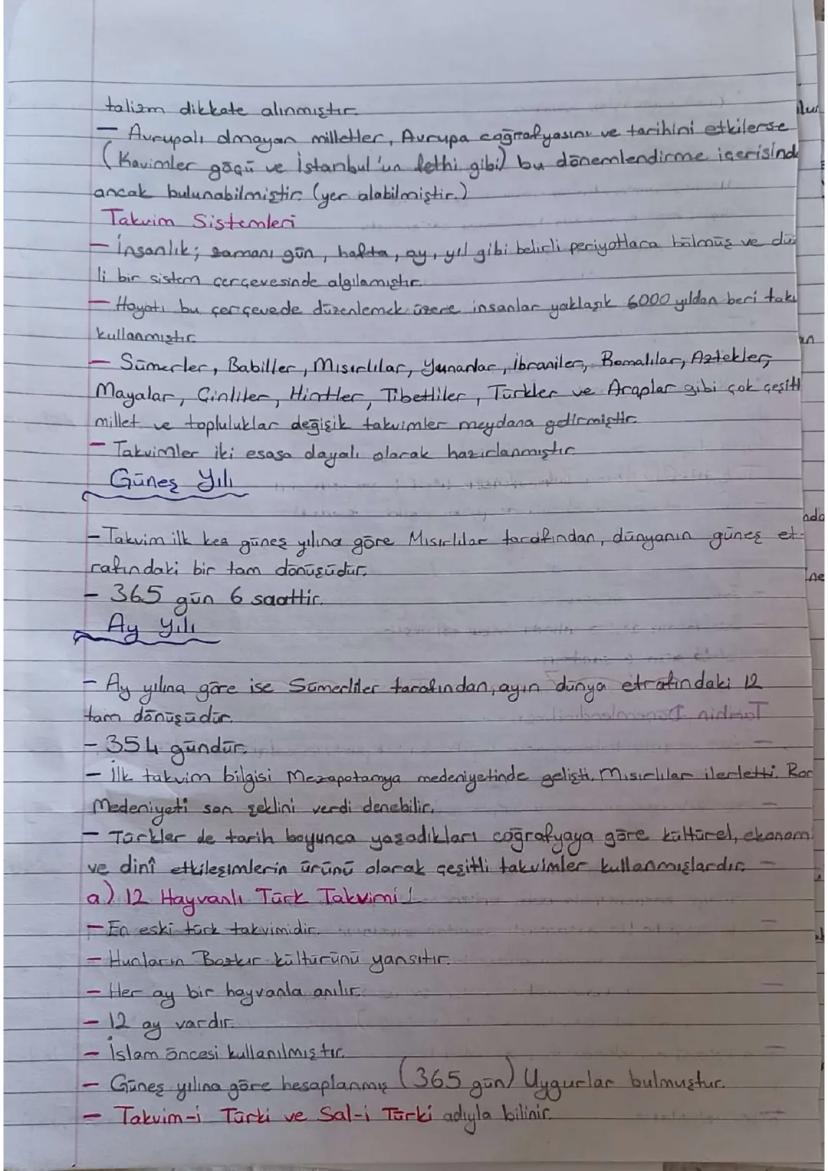 talizm dikkate alınmıştır.
— Avrupalı olmayan milletler, Avrupa coğrafyasını ve tarihini etkilerse
(Kavimler göçü ve İstanbul'un fethi gibi) bu dönemlendirme içerisind
ancak bulunabilmiştir (yer alabilmiştir.)
Takvim Sistemleri
— İnsanlık; zamanı gün, hafta, ay, yıl gibi belirli periyotlara bölmüş ve dü
li bir sistem çerçevesinde algılamıştır.
— Hayatı bu çerçevede düzenlemek üzere insanlar yaklaşık 6000 yıldan beri takv
kullanmıştır.
— Sümerler, Babiller, Mısırlılar, Yunanlar, İbraniler, Romalılar, Aztekler,
Mayalar, Çinliler, Hintler, Tibetliler, Türkler ve Araplar gibi çok çeşitl
millet ve topluluklar değişik takvimler meydana getirmiştir.
— Takvimler iki esasa dayalı olarak hazırlanmıştır.
Güneş Yılı
— Takvim ilk kez güneş yılına göre Mısırlılar tarafından, dünyanın güneş et-
rafındaki bir tam dönüşüdür.
— 365 gün 6 saattir.
Ay Yılı
— Ay yılına göre ise Sümerliler tarafından, ayın dünya etrafındaki 12
tam dönüşüdür.
— 354 gündür.
— İlk takvim bilgisi Mezapotamya medeniyetinde gelişti. Mısırlılar ilerletti. Rom
Medeniyeti son şeklini verdi denebilir.
— Türkler de tarih boyunca yaşadıkları coğrafyaya göre kültürel, ekonom
ve dinî etkileşimlerin ürünü olarak çeşitli takvimler kullanmışlardır.
a) 12 Hayvanlı Türk Takvimi!
— En eski türk takvimidir.
— Hunların Bozkır kültürünü yansıtır.
— Her ay bir hayvanla anılır.
— 12 ay vardır.
— İslam öncesi kullanılmıştır.
— Güneş yılına göre hesaplanmış (365 gün) Uygurlar bulmuştur.
— Takvim-i Türki ve Sal-i Türki adıyla bilinir.